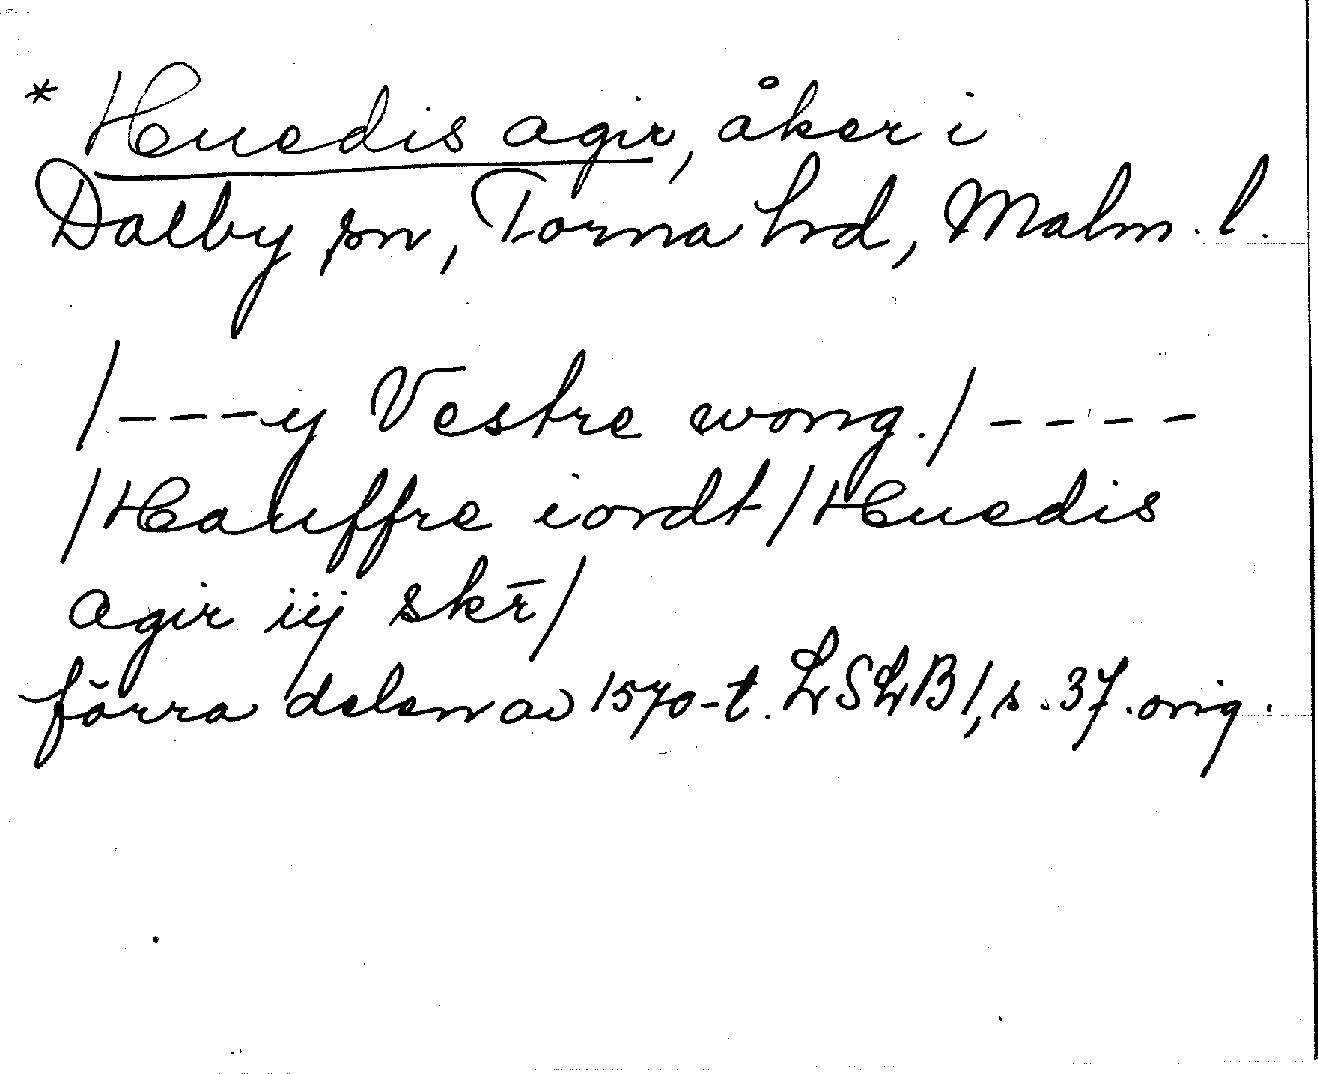 * Huedis agir, åker i
Dalby sn, Torna hd, Malm. l.
/---y Vestre wong./----
/Hauffre iordt/Huedis
agir iij skr̄/
förra delen av 1570-t. LSLB1, s. 37. orig.